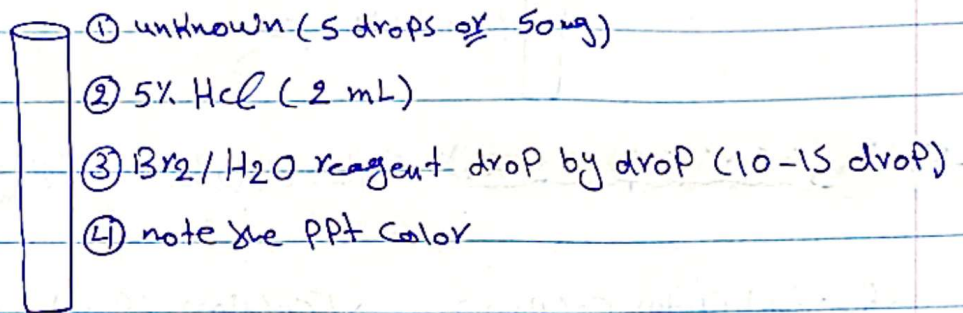 ① unknown (5 drops or 50 mg)
② 5% Hcl (2 mL)
③ Br2/H2O reagent drop by drop (10-15 drop)
④ note the PPt Color